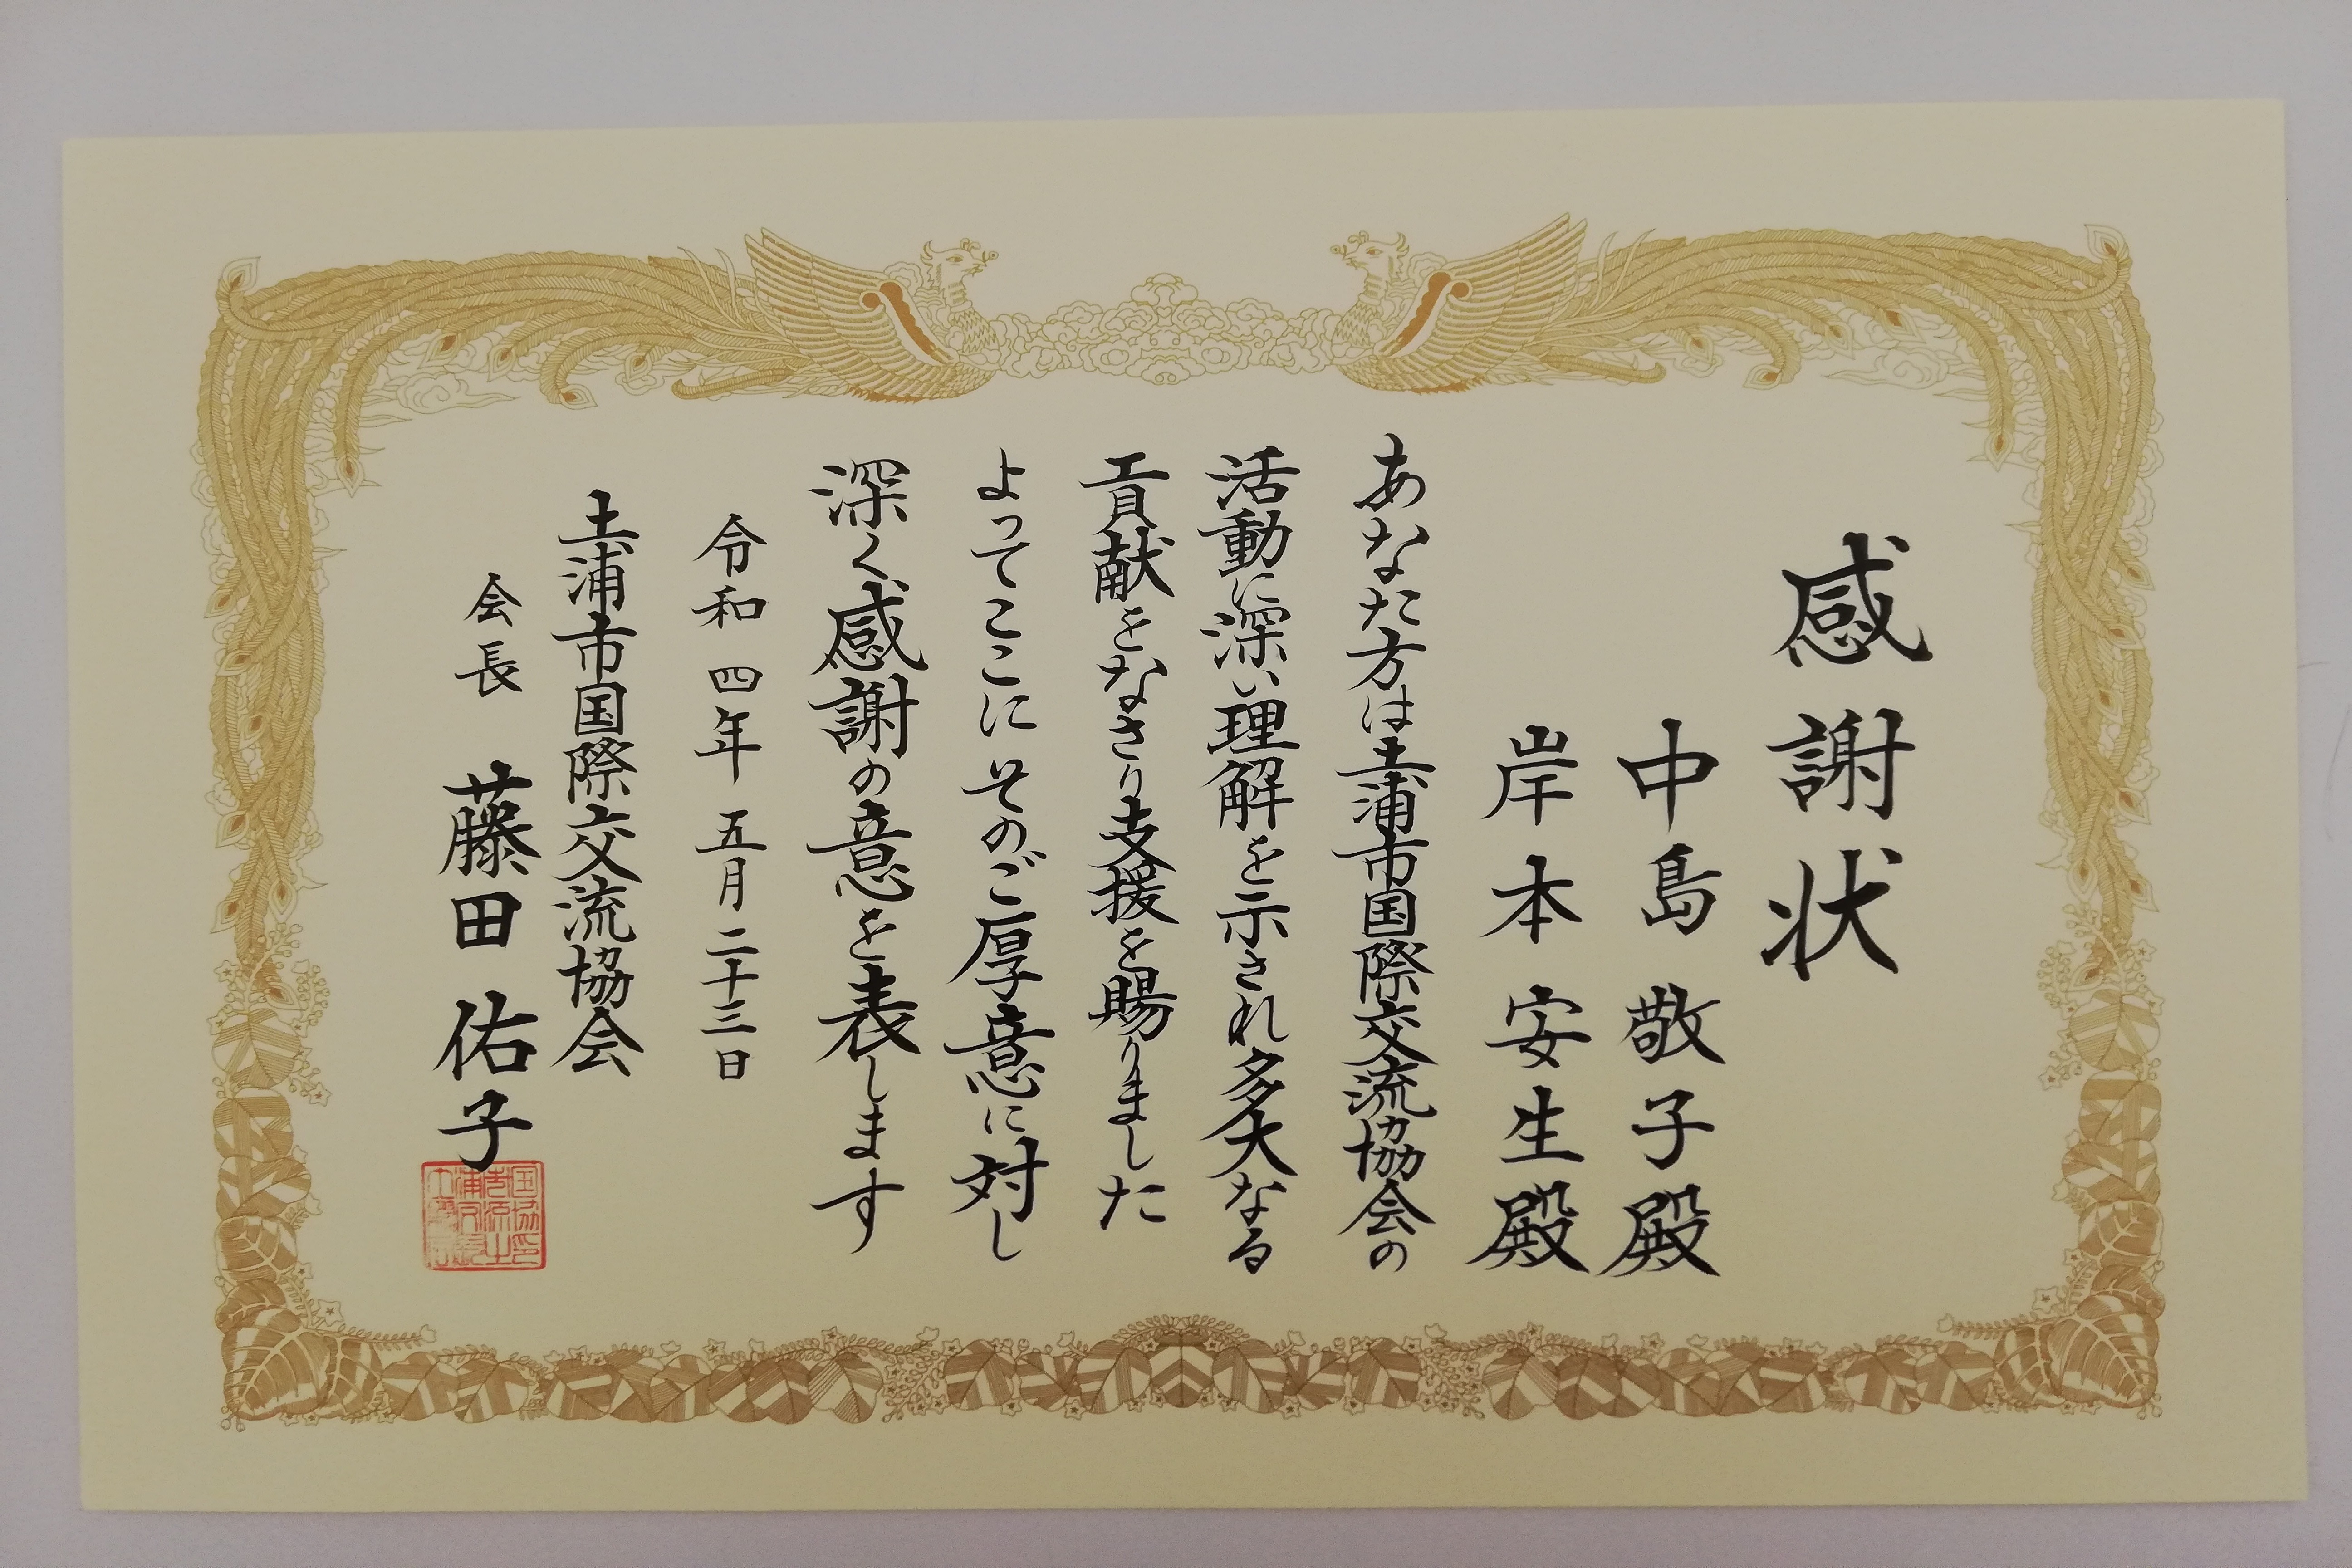 感謝状
中島敬子殿
岸本安生殿
あなた方は土浦市国際交流協会の
活動に深い理解を示され多大なる
貢献をなさり支援を賜りました
よってここにそのご厚意に対し
深く感謝の意を表します
令和四年五月二十三日
土浦市国際交流協会
会長 藤田佑子